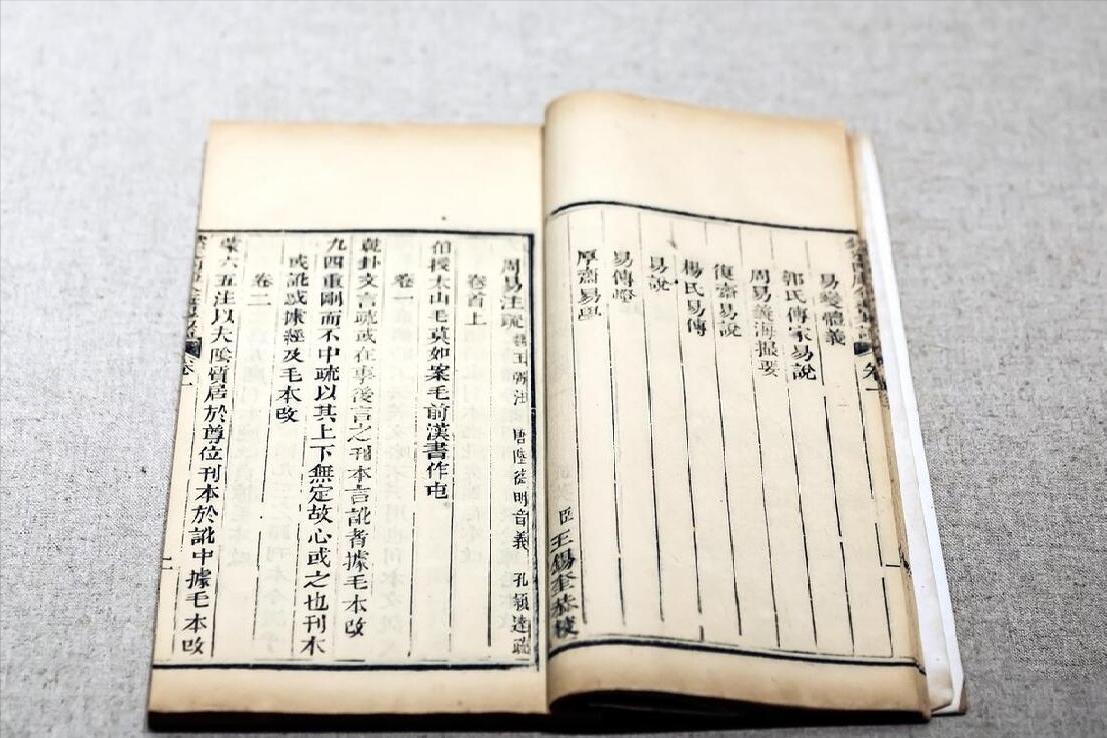 易變體義
郭氏傳家易說
周易義海撮要
復齋易說
楊氏易傳
易說
易傳燈
厚齋易學
臣王錫奎恭校
周易注疏 魏王弼注 唐陸德明音義 孔穎達疏
卷首上
伯授太山毛莫如案毛前漢書作屯
卷一
乾卦文言疏或在事後言之刊本言訛者據毛本改
九四重剛而不中疏以其上下無定故心或之也刊本
或訛惑據經及毛本改
卷二
蒙六五注以夫陰質居於尊位刊本於訛中據毛本改
卷一